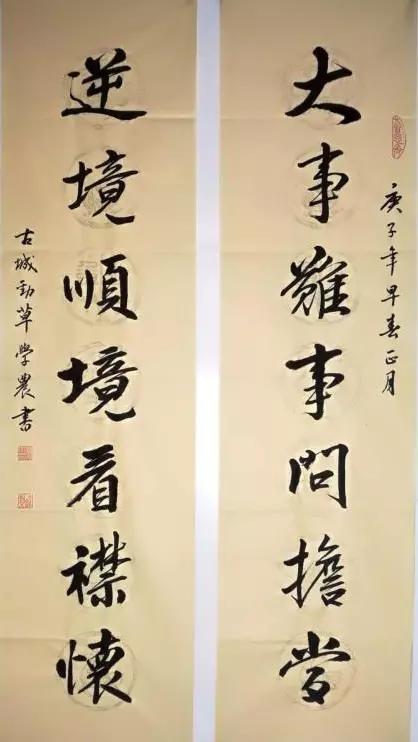 庚子年早春正月
大事難事問擔當
逆境順境看襟懷
古城勁草學農書